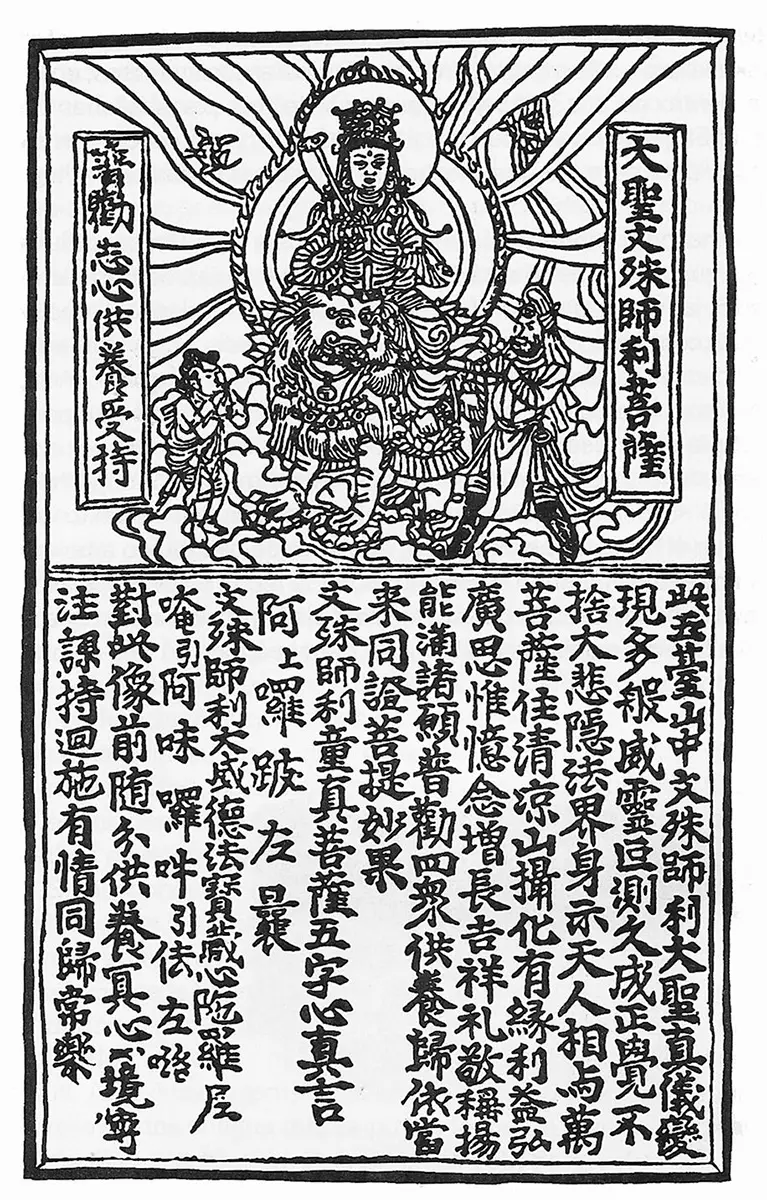 大聖文殊師利菩薩
普勸志心供養受持
此五臺山中文殊師利大聖真儀變
現多般威靈叵測久成正覺不
捨大悲隱法界身示天人相与萬
菩薩住清凉山攝化有緣利益弘
廣思惟憶念增長吉祥礼敬稱揚
能滿諸願普勸四衆供養歸依當
来同證菩提妙果
文殊師利童真菩薩五字心真言
阿上囉跛左曩
文殊師利大威德法寶藏心陁羅尼
唵引阿味囉吽引佉左
對此像前随分供養冥心一境專
注課持迴施有情同歸常樂